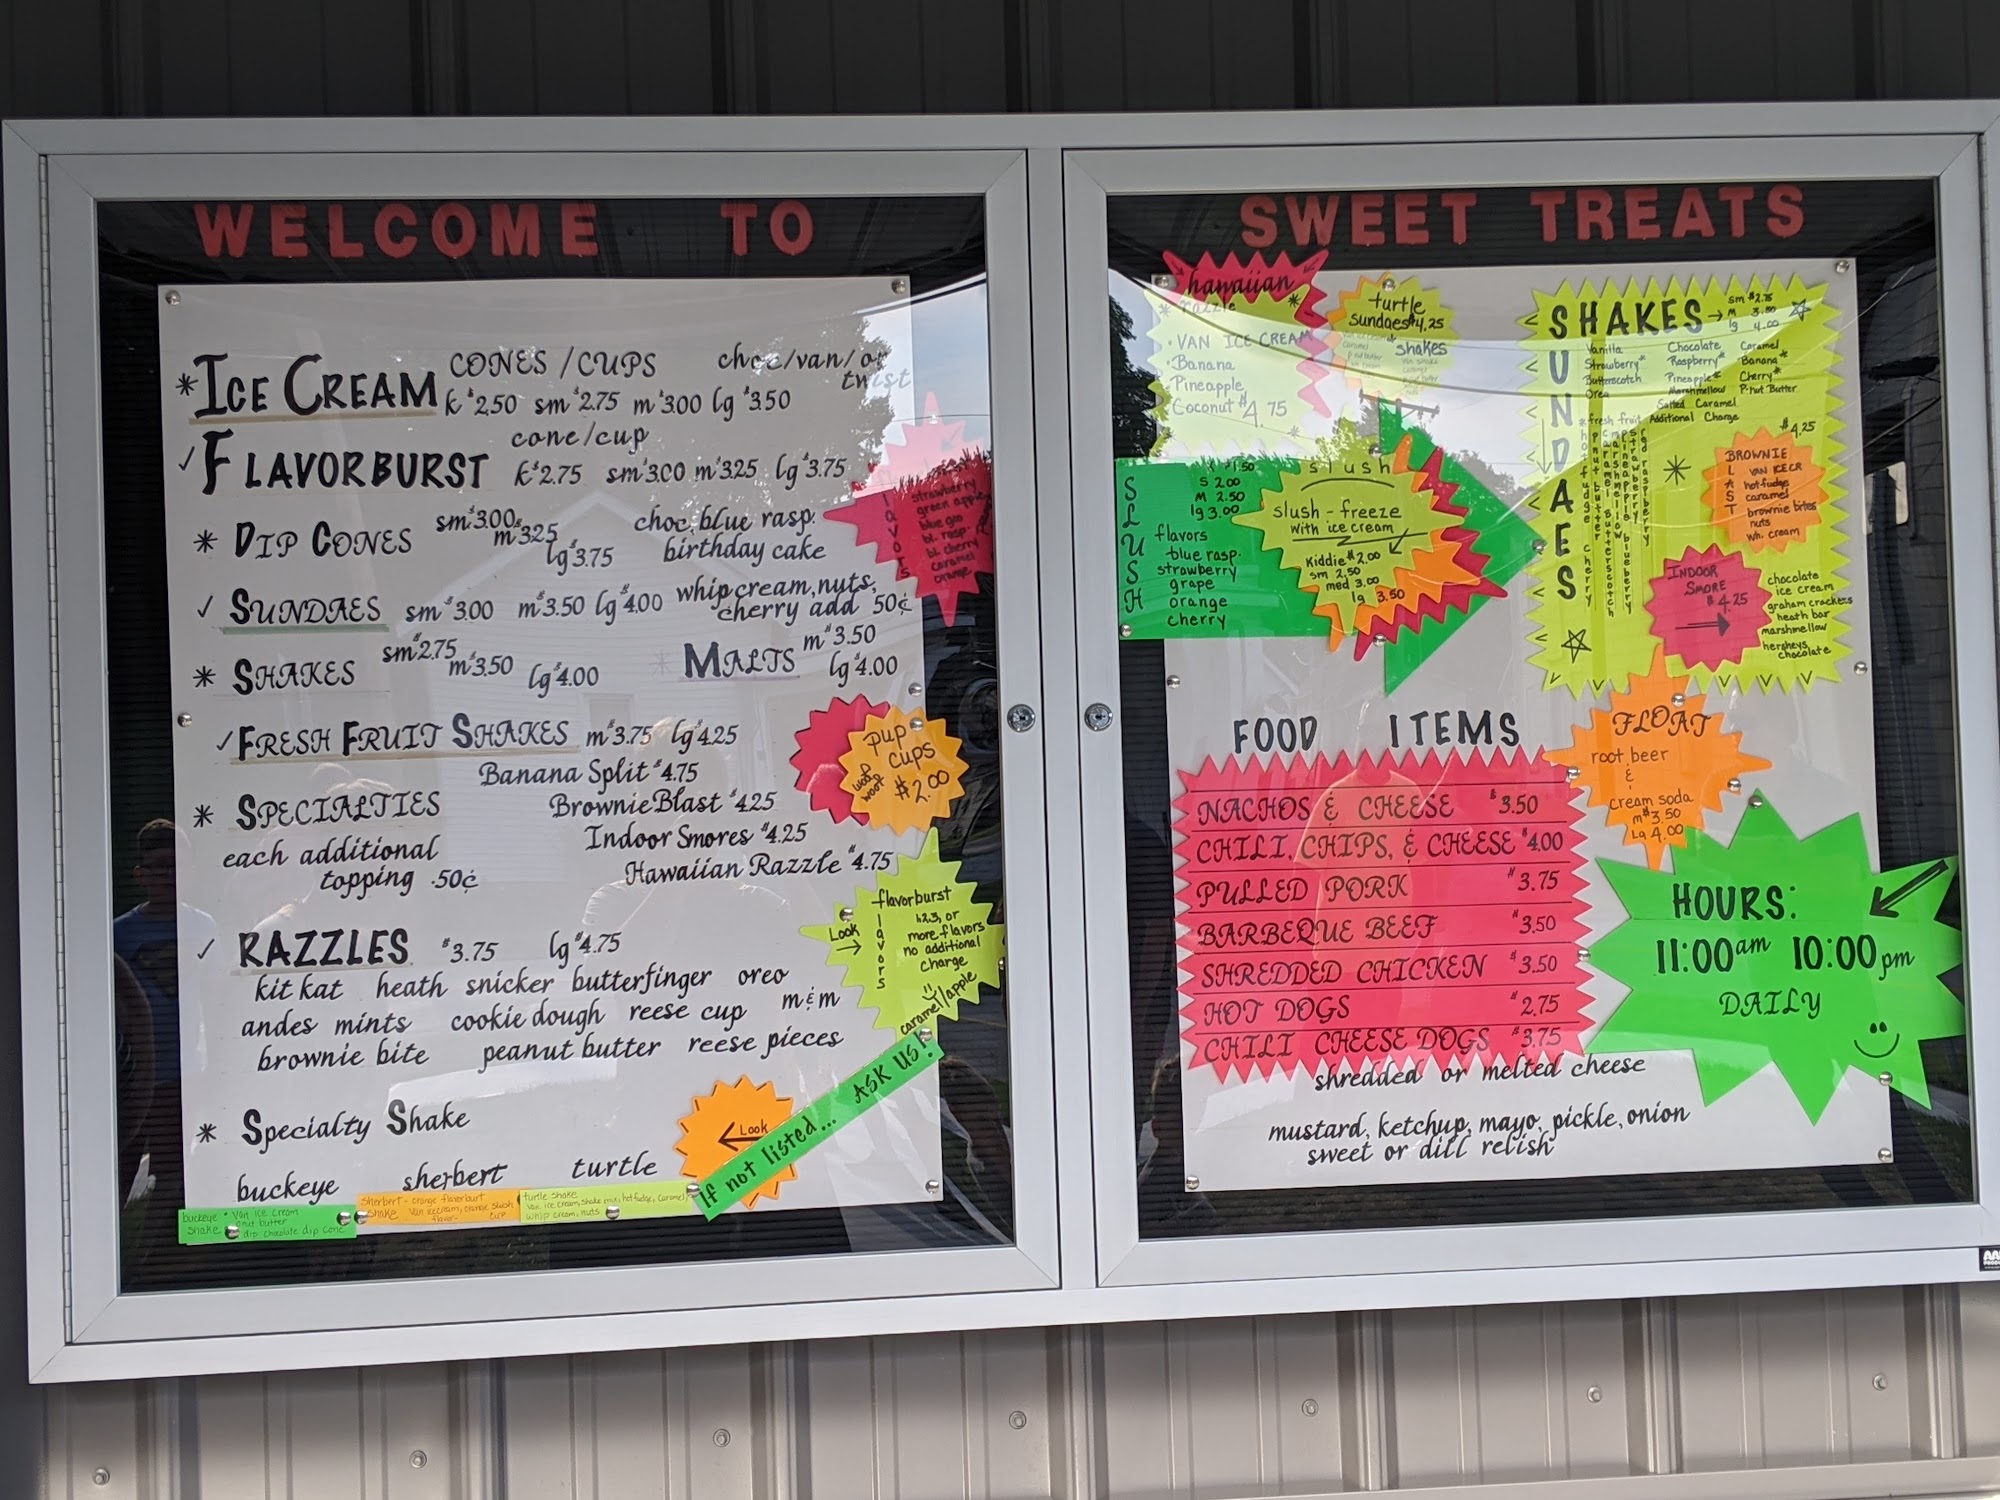 WELCOME TO
*ICE CREAM CONES/CUPS choc/van/or twist
k $2.50 sm $2.75 m $3.00 lg $3.50
✓FLAVORBURST cone/cup
k $2.75 sm $3.00 m $3.25 lg $3.75
* DIP CONES sm $3.00 m $3.25 lg $3.75
choc, blue rasp.
birthday cake
✓ SUNDAES sm $3.00 m $3.50 lg $4.00
whip cream, nuts,
cherry add 50¢
* SHAKES sm $2.75 m $3.50 lg $4.00
* MALTS m $3.50
lg $4.00
✓FRESH FRUIT SHAKES m $3.75 lg $4.25
* SPECIALTIES
Banana Split $4.75
Brownie Blast $4.25
Indoor Smores $4.25
Hawaiian Razzle $4.75
each additional
topping .50¢
✓ RAZZLES $3.75 lg $4.75
kit kat heath snicker butterfinger oreo
andes mints cookie dough reese cup m&m
brownie bite peanut butter reese pieces
* Specialty Shake
buckeye sherbert turtle
flavors
strawberry
green apple
blue goo
bl. rasp
bl. cherry
caramel
orange
pup
cups
woof
woof
$2.00
Look
flavors
flavorburst
1,2,3, or
more flavors
no additional
charge
caramel/apple
Look
If not listed... ASK US!
buckeye * Van ice cream
shake
dip chocolate dip cone
sherbert - orange flavorburt
shake van icecream, orange slush
flavor-
turtle shake
van ice cream, shake mix, hot fudge, caramel
whip cream, nuts
SWEET TREATS
hawaiian
* razzle *
• VAN ICE CREAM
• Banana
Pineapple
Coconut $4.75
turtle
sundaes $4.25
* shakes
SLUSH
k $1.50
S 2.00
M 2.50
lg 3.00
flavors
blue rasp.
strawberry
grape
orange
cherry
slush
slush - freeze
with ice cream
Kiddie $2.00
sm 2.50
med 3.00
lg 3.50
SHAKES → sm $2.75
m 3.50
lg 4.00
Vanilla Chocolate Caramel
Strawberry* Raspberry* Banana*
Butterscotch Pineapple* Cherry*
Oreo Marshmellow P-nut Butter
Salted Caramel
*fresh fruit Additional Charge
SUNDAES
hot fudge cherry
peanut butter
caramel butterscotch
marshmellow
pineapple blueberry
strawberry
red raspberry
$4.25
BROWNIE
BLAST
VAN ICE CR
hot fudge
caramel
brownie bites
nuts
wh. cream
INDOOR
SMORE
$4.25
chocolate
ice cream
graham crackers
heath bar
marshmellow
hersheys
chocolate
FLOAT
root beer
&
cream soda
m $3.50
Lg 4.00
FOOD ITEMS
NACHOS & CHEESE $3.50
CHILI, CHIPS, & CHEESE $4.00
PULLED PORK $3.75
BARBEQUE BEEF $3.50
SHREDDED CHICKEN $3.50
HOT DOGS $2.75
CHILI CHEESE DOGS $3.75
shredded or melted cheese
mustard, ketchup, mayo, pickle, onion
sweet or dill relish
HOURS:
11:00am 10:00pm
DAILY